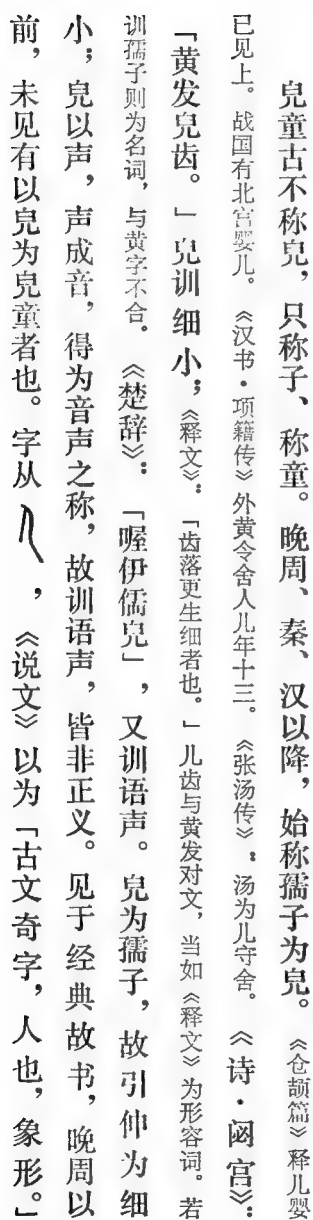 兒童古不称兒，只称子、称童。晚周、秦、汉以降，始称孺子为兒。《仓颉篇》释儿婴
已见上。战国有北宫婴儿。《汉书·项籍传》外黄令舍人儿年十三。《张汤传》：汤为儿守舍。《诗·閟宫》：
「黄发兒齿。」兒训细小；《释文》：「齿落更生细者也。」儿齿与黄发对文，当如《释文》为形容词。若
训孺子则为名词，与黄字不合。《楚辞》：「喔伊儒兒」，又训语声。兒为孺子，故引伸为细
小；兒以声，声成音，得为音声之称，故训语声，皆非正义。见于经典故书，晚周以
前，未见有以兒为兒童者也。字从，《说文》以为「古文奇字，人也，象形。」